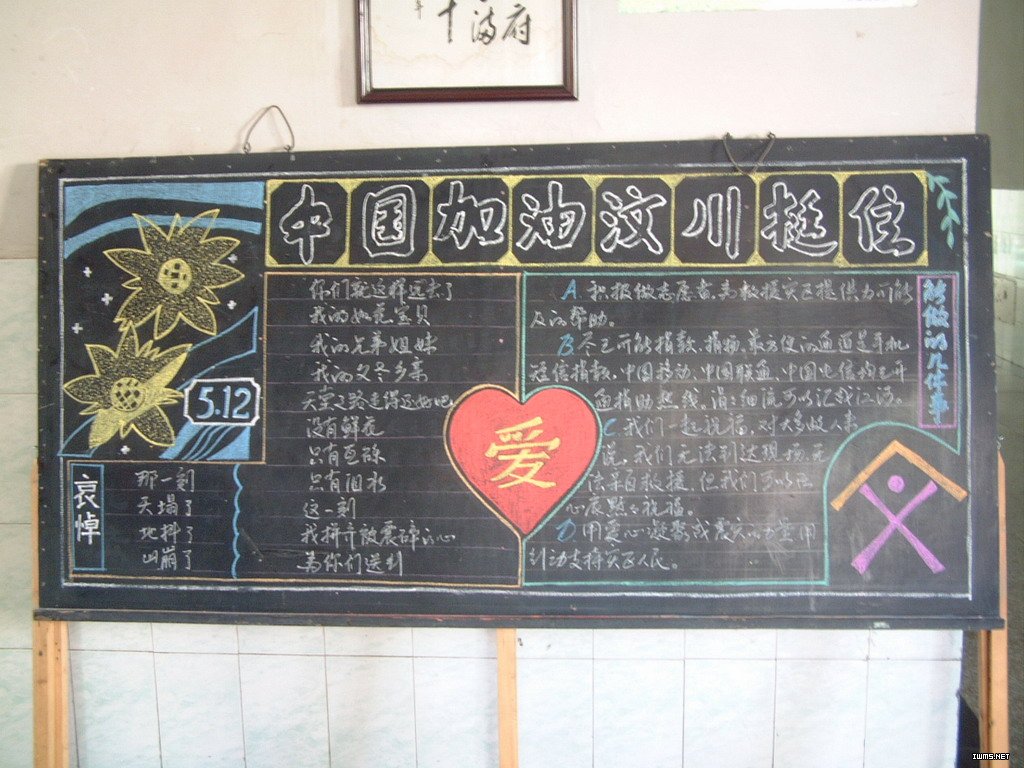 府海十
中国加油汶川挺住
5.12
哀悼
那一刻
天塌了
地抖了
山崩了
你们就这样远去了
我的如花宝贝
我的兄弟姐妹
我的父老乡亲
天堂之路走得还好吧
没有鲜花
只有瓦砾
只有泪水
这一刻
我拼齐被震碎的心
为你们送别
爱
能做的几件事
A. 积极做志愿者,为救援灾区提供力所能
及的帮助。
B. 尽己所能捐款、捐物,最方便的通道是手机
短信捐款,中国移动、中国联通、中国电信均已开
通捐助热线。涓涓细流可以汇成江海。
C. 我们一起祝福,对大多数人来
说,我们无法到达现场,无
法亲自救援,但我们可以在
心底默默祝福。
D 用爱心凝聚成震灾的力量用
行动支持灾区人民。
IWMS.NET